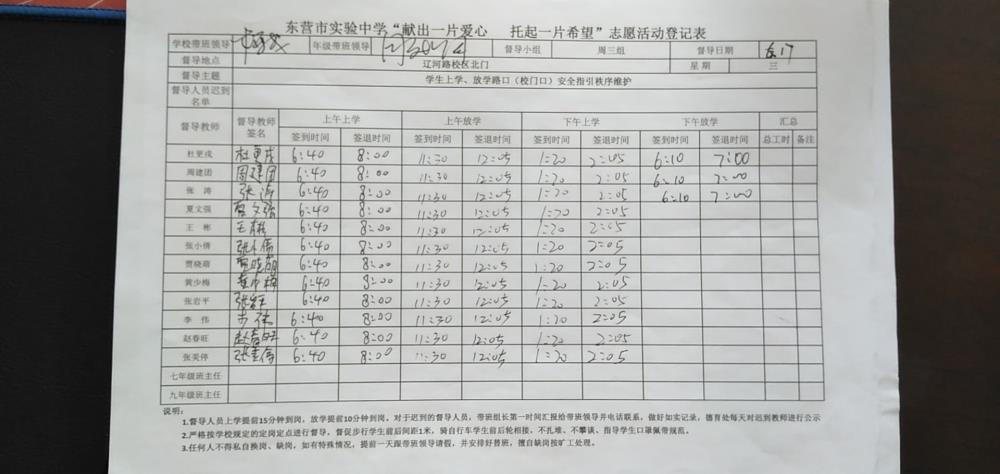 东营市实验中学“献出一片爱心 托起一片希望”志愿活动登记表
学校带班领导 年级带班领导 督导小组 周三组 督导日期 6.17
督导地点 辽河路校区北门 星期 三
督导主题 学生上学、放学路口（校门口）安全指引秩序维护
督导人员迟到名单
督导教师 督导教师签名 上午上学 上午放学 下午上学 下午放学 汇总
签到时间 签退时间 签到时间 签退时间 签到时间 签退时间 签到时间 签退时间 总工时 备注
杜更戌 杜更戌 6:40 8:00 11:30 12:05 1:20 2:05 6:10 7:00
周建团 周建团 6:40 8:00 11:30 12:05 1:20 2:05 6:10 7:00
张 涛 张涛 6:40 8:00 11:30 12:05 1:20 2:05 6:10 7:00
夏文强 夏文强 6:40 8:00 11:30 12:05 1:20 2:05
王 彬 王彬 6:40 8:00 11:30 12:05 1:20 2:05
张小倩 张小倩 6:40 8:00 11:30 12:05 1:20 2:05
贾晓萌 贾晓萌 6:40 8:00 11:30 12:05 1:20 2:05
黄少梅 黄少梅 6:40 8:00 11:30 12:05 1:20 2:05
张岩平 6:40 8:00 11:30 12:05 1:20 2:05
李 伟 李伟 6:40 8:00 11:30 12:05 1:20 2:05
赵春旺 赵春旺 6:40 8:00 11:30 12:05 1:20 2:05
张美停 6:40 8:00 11:30 12:05 1:20 2:05
七年级班主任
九年级班主任
说明：
1.督导人员上学提前15分钟到岗，放学提前10分钟到岗。对于迟到的督导人员，带班组长第一时间汇报给带班领导并电话联系，做好如实记录，德育处每天对迟到教师进行公示
2.严格按学校规定的定岗定点进行督导，督促步行学生前后间距1米，骑自行车学生前后轮相接，不扎堆、不攀谈、指导学生口罩佩带规范。
3.任何人不得私自换岗、缺岗，如有特殊情况，提前一天跟带班领导请假，并安排好替班，擅自缺岗按旷工处理。